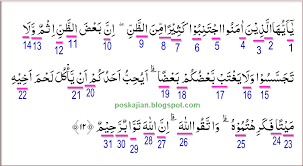 يٰٓاَيُّهَا الَّذِيْنَ اٰمَنُوا اجْتَنِبُوْا كَثِيْرًا مِّنَ الظَّنِّ ۖ اِنَّ بَعْضَ الظَّنِّ اِثْمٌ وَّلَا
1 2 3 4 5 6 7 8 9 10 11 12 13 14
تَجَسَّسُوْا وَلَا يَغْتَبْ بَّعْضُكُمْ بَعْضًا ۗ اَيُحِبُّ اَحَدُكُمْ اَنْ يَّأْكُلَ لَحْمَ اَخِيْهِ
15 16 17 18 19 20 21 22
poskajian.blogspot.com
مَيْتًا فَكَرِهْتُمُوْهُ ۗ وَاتَّقُوا اللّٰهَ ۗ اِنَّ اللّٰهَ تَوَّابٌ رَّحِيْمٌ ﴿١٢﴾
23 24 25 26 27 28 29 30 31